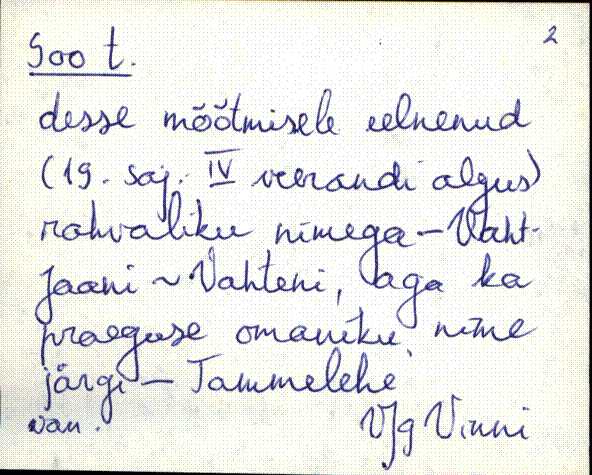 2
Soo t.
desse mõõtmisele eelnenud
(19. saj. IV veerandi algus)
rahvaliku nimega – Vaht-
jaani ~ Vahteni, aga ka
praeguse omaniku nime
järgi – Tammelehe
van. VJg Vinni